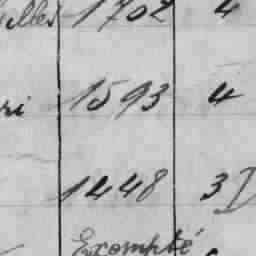 elles 1702 4
ri 1593 4
1448 3
Exompté